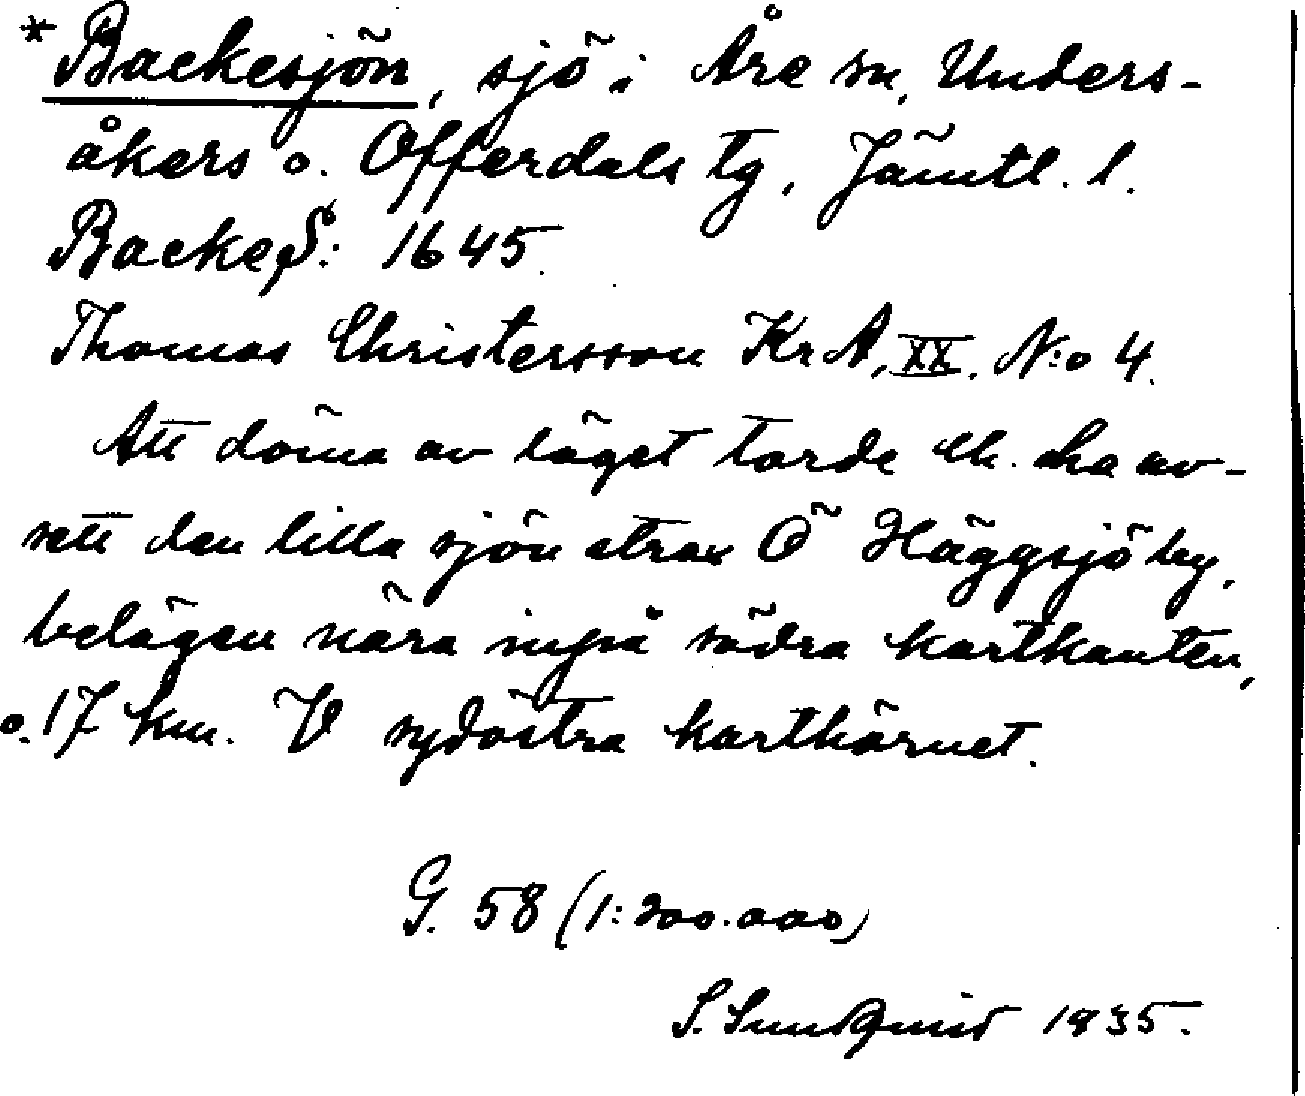 *Backesjön, sjö i Åre sn, Unders-
åkers o. Offerdals tg, Jämtl. l.
Backe S: 1645.
Thomas Christersson KrA, XX, N:o 4.
Att döma av läget torde Ch. ha av-
sett den lilla sjön strax Ö Häggsjöby,
belägen nära inpå södra kartkanten,
o. 17 km. V sydöstra karthörnet.
G. 58 (1:200.000)
S. Sundquist 1935.